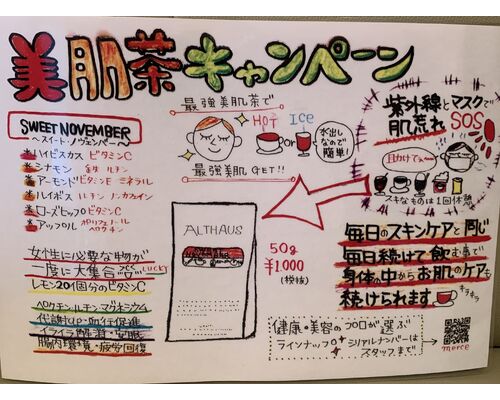 美肌茶キャンペーン
最強美肌茶で
HOT or ICE
水出し
なので
簡単!
最強美肌GET!!
紫外線とマスクで
肌荒れ SOS
スキなものは1回休憩
SWEET NOVEMBER
~スイート・ノヴェンバー~
ハイビスカス ビタミンC
シナモン ルチン
アーモンド ビタミンE ミネラル
ルイボス ルチン ノンカフェイン
ローズヒップ ビタミンC
アップル ポリフェノール
ペクチン
女性に必要な物が
一度に大集合 LUCKY
レモン20個分のビタミンC
ペクチン・ルチン・マグネシウム
代謝UP・血行促進
イライラ解消・安眠
腸内環境・疲労回復
ALTHAUS
50g
¥1,000
(税抜)
毎日のスキンケアと同じ
毎日続けて飲む事で
身体の中からお肌のケアも
続けられます
キラキラ
健康・美容のプロが選ぶ
ラインナップ シリアルナンバーは
スタッフまで
merce